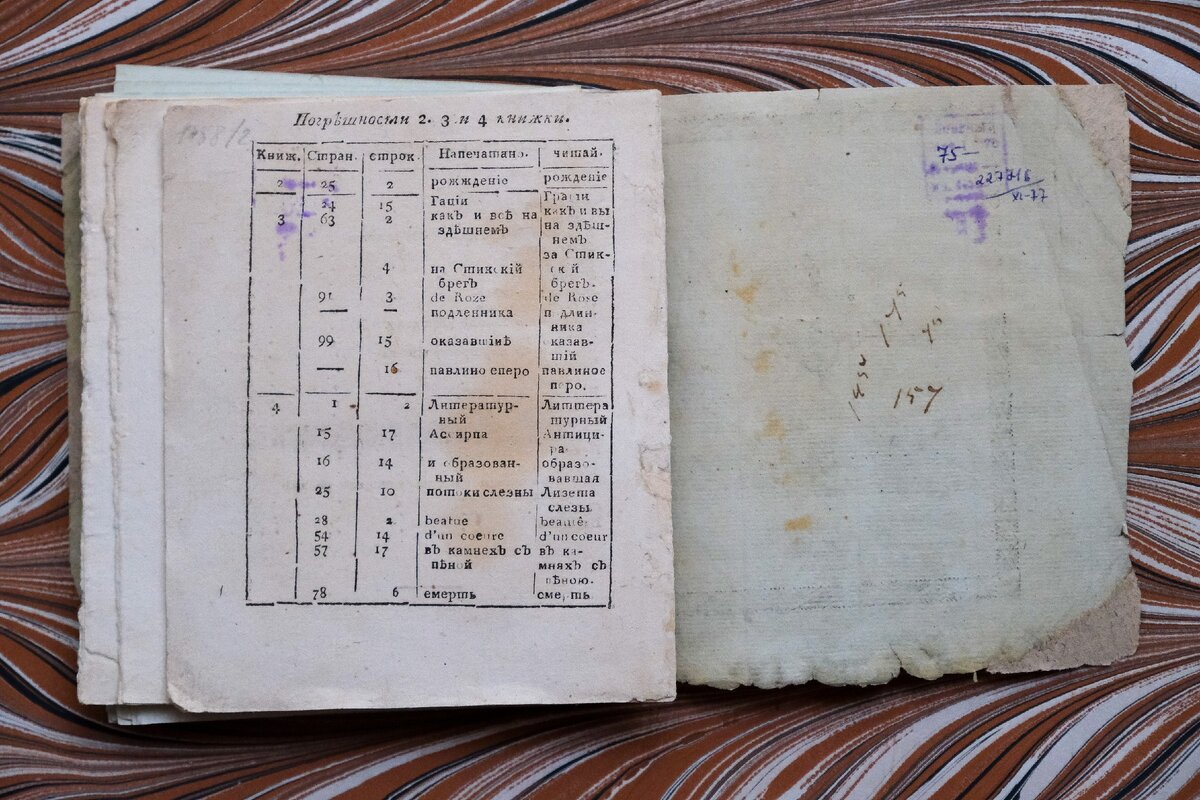 Погрѣшности 2. 3 и 4 книжки.
Книж. Стран. строк. Напечатано. читай.
2 25 2 рожжденіе рожденіе
24 15 Гаціи Граціи
3 63 2 какъ и всѣ на какъ и вы
здѣшнемъ на здѣш-
немъ
за Стик-
4 на Стикскій ск й
брегъ брегъ.
91 3 de Roze de Rose
— — подленника п длин-
ника
99 15 оказавшиѣ казав-
шій
— 16 павлино сперо павлиное
перо.
4 1 2 Литератур- Литтера
ный турный
15 17 Ассирпа Антици-
ра
16 14 и образован- образо-
ный вавшая
25 10 потоки слезны Лизета
слезы
28 2 beatue beauté
54 14 d'un coeure d'un coeur
57 17 въ камнехъ съ въ ка-
пѣной мняхъ съ
пѣною.
78 6 емерть смерть
75—
XI-77
157